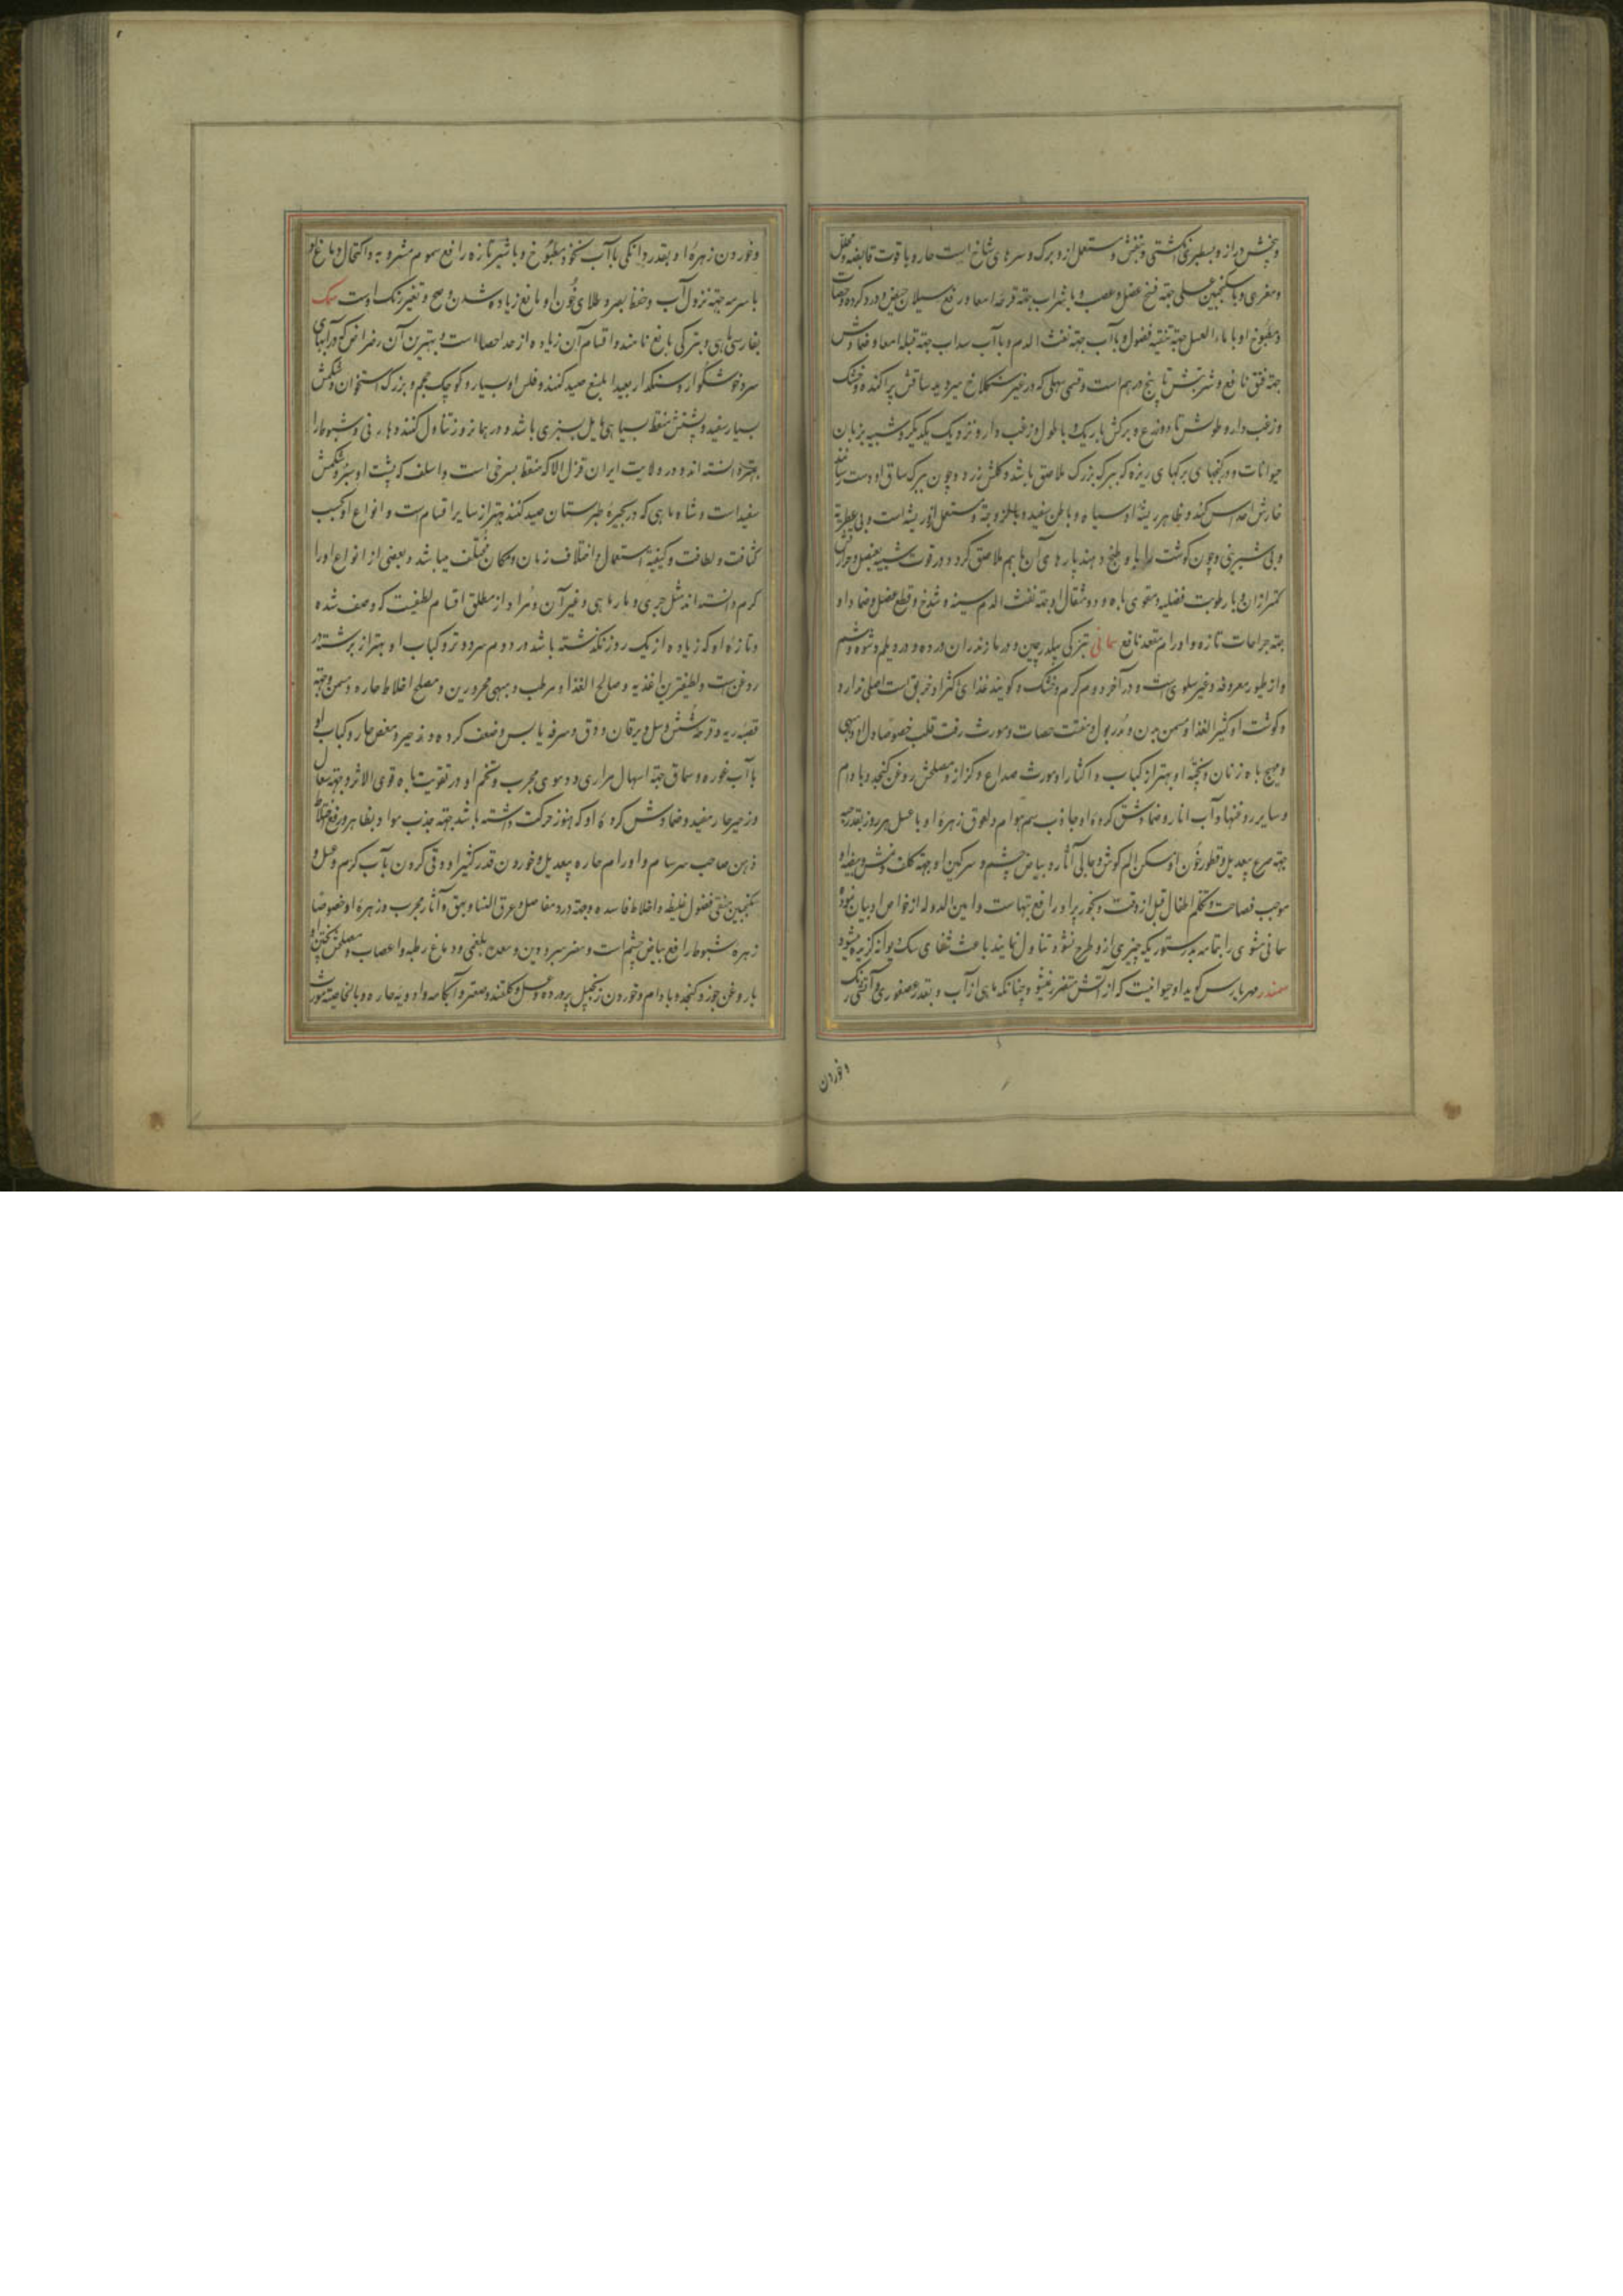 وبیخش دراز و بسطبری انگشتی و بنفش و مستعمل ازو برک و سرهای شاخ است حار و با قوت قابضه و محلل
ومغری و با سکنجبین عسلی جهة فسخ عضل و عصب و با شراب جهة قرحهٔ امعا و رفع سیلان حیض و درد کرده و حصات
و مطبوخ او با ماء العسل جهة تنقیه فضول و با آب جهة نفث الدم و با آب سداب جهة قیلهٔ امعا و ضمادش
جهة فتق نافع و شربتش تا پنج درهم است و قسمی سهلی که در غیر سنکلاخ میروید ساقش پراکنده و خشک
و زغب دار و طولش تا دو ذرع و برکش باریک و با طول و زغب دار و نزدیک یکدیکر و شبیه بزبان
حیوانات و در کنجهای برکهای ریزه که ببرک بزرک ملاصق باشد و کلش زرد و چون ببرک ساق او دست رسانند
خارش احداس کند و ظاهر ریشهٔ او سیاه و باطن سفید و با لزوجة و مستعمل ازو ریشه است و بی عطریة
و بی شیرینی و چون کوشت را با او طبخ دهند پارهای آن با هم ملاصق کردد و در قوت شبیه بعنصل و حرارتش
کمتر از آن و با رطوبت فضلیه و مقوی باه و دو مثقال او جهة نفث الدم سینه و شدخ و قطع عضل و ضماد او
جهة جراحات تازه و اورام مقعد نافع سمانی بترکی بیلدرچین و در مازندران ورده و در دیلم وشوم و شم
و از طیور معروفه و غیر سلوی است و در آخر دوم کرم و خشک و کویند غذای اکثر او خربق است اصلی ندارد
و کوشت او کثیر الغذا و مسمن بدن و مدر بول و مفتت حصات و مورث رقت قلب خصوصا دل او و مبهی
و مهیج باه زنان و پختهٔ او بهتر از کباب و اکثار او مورث صداع و کزاز و مصلحش روغن کنجد و بادام
و سایر روغنها و آب انار و ضماد شق کردهٔ او جاذب سم هوام و لعوق زهرهٔ او با عسل هر روز بقدر حبه
جهة صرع بیعدیل و قطور خون او مسکن الم کوش و جالی آثار و بیاض چشم و سرکین او جهة کلف و نمش و بیضهٔ او
موجب فصاحت و تکلم اطفال قبل از وقت و بخور پر او رافع تبهاست و امین الدوله از خواص او بیان نموده
سمانی مشوی را بتمامه بدستوریکه چیزی ازو طرح نشود تناول نمایند باعث شفای سک دیوانه کزیده میشود
سمندر مهربارس کوید او حیوانیست که از آتش متضرر نمیشود چنانکه ماهی از آب و بقدر عصفوری و آتشی رنک
وخوردن
وخوردن زهرهٔ او بقدر دانکی با آب نخود مطبوخ و با شیر تازه رافع سموم مشروبه و اکتحال دماغ او
با سرمه جهة نزول آب و حفظ بصر و طلای خون او مانع زیاده شدن وضح و تغیر رنک اوست سمک
بفارسی ماهی و بترکی بالغ نامند و اقسام آن زیاده از حد احصا است و بهترین آن رضراض که در آبهای
سرد خوشکوار و سنکدار بعید از منبع صید کنند و فلس او بسیار و کوچک حجم و بزرک استخوان و شکمش
بسیار سفید و پشتش منقط بسیاهی مایل بسبزی باشد و در همانروز تناول کنند و هاربی و شبوط را
بهتر دانسته اند و در ولایت ایران قزل الا که منقط بسرخی است و اسلف که پشت او سبز و شکمش
سفید است و شاه ماهی که در بحیرهٔ طبرستان صید کنند بهتر از سایر اقسام است و انواع او بحسب
کثافت و لطافت و کیفیة استعمال و اختلاف زمان و مکان مختلف میباشد و بعضی از انواع او را
کرم دانسته اند مثل جری و مار ماهی و غیر آن و مراد از مطلق اقسام لطیفیست که وصف شده
و تازهٔ او که زیاده از یک روز نکذشته باشد در دوم سرد و تر و کباب او بهتر از برشته در
روغن است و لطیفترین اغذیه و صالح الغذا و مرطب و مبهی محرورین و مصلح اخلاط حاره و مسمن و جهة
قصبهٔ ریه و قرحهٔ شش و سل و یرقان و دق و سرفه یابس و ضعف کرده و زحیر و مغص حار و کباب او
با آب غوره و سماق جهة اسهال مراری و دموی مجرب و تخم او در تقویت باه قوی الاثر و جهة سعال
و زحیر حار مفید و ضماد شش کردهٔ او که هنوز حرکت داشته باشد جهة جذب مواد بظاهر و رفع اختلاط
ذهن صاحب سرسام و اورام حاره بیعدیل و خوردن قدر کثیر او و قی کردن بآب کرم و عسل و
سکنجبین منقی فضول غلیظ و اخلاط فاسده و جهة درد مفاصل و عرق النسا و بهق و آثار مجرب و زهرهٔ او خصوصا
زهره شبوط رافع بیاض چشم است و مضر مبرودین و معدهٔ بلغمی و دماغ رطبه و اعصاب و مصلحش پختن او
با روغن جوز و کنجد و بادام و خوردن زنجبیل پرورده و عسل و کلقند و صعتر و آبکامه و ادویهٔ حاره و بالخاصیة مورث